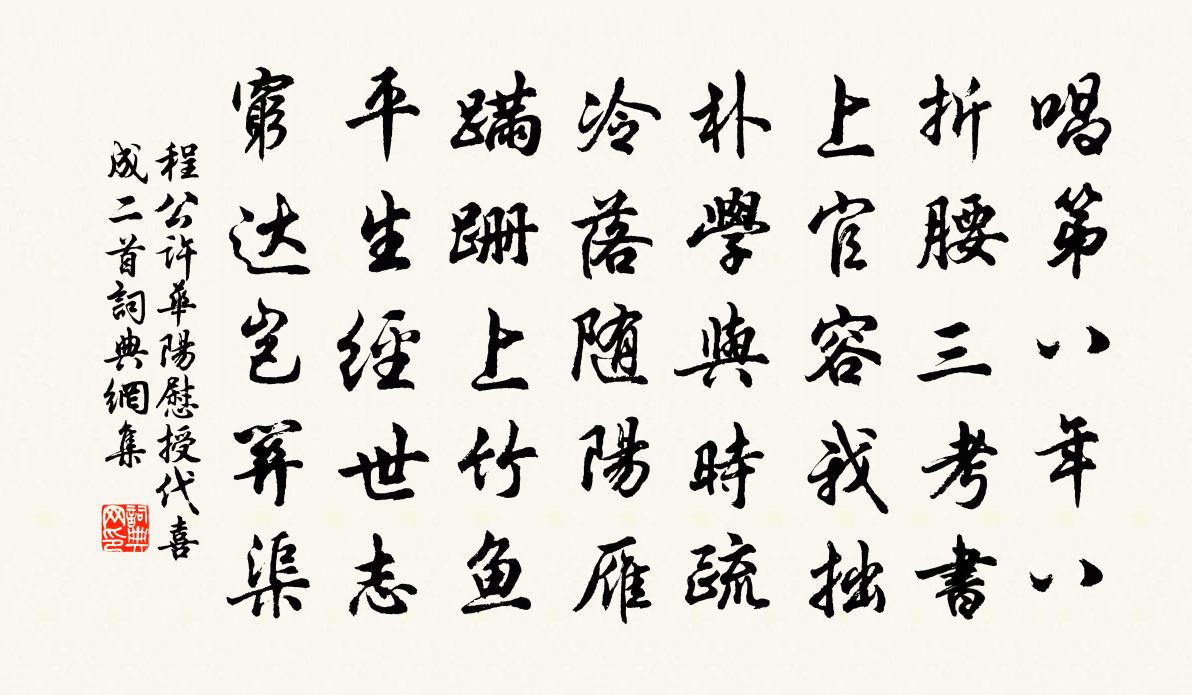 唱第八年八
折腰三考書
上官容我拙
朴學與時疏
冷落随陽雁
蹣跚上竹鱼
平生經世志
窮达岂算渠
程公許華陽慰授代喜
成二首詞典網集
詞典网印